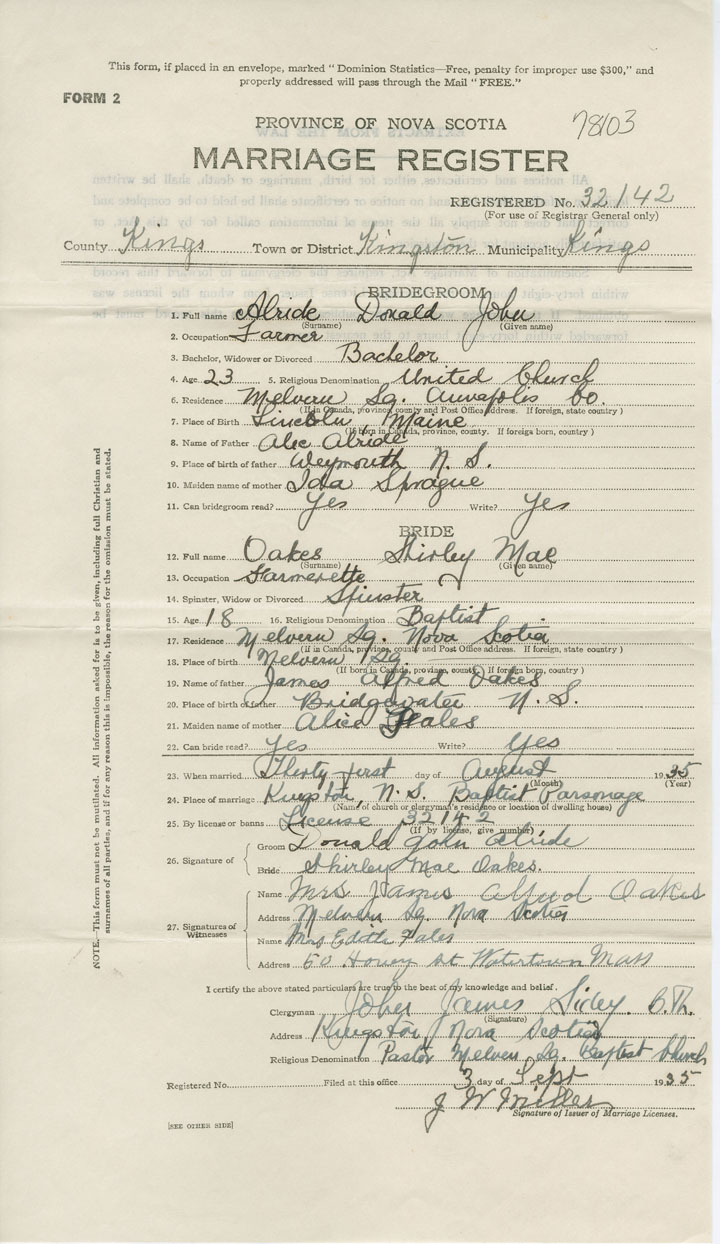 This form, if placed in an envelope, marked " Dominion Statistics—Free, penalty for improper use $300," and
properly addressed will pass through the Mail "FREE."
FORM 2
PROVINCE OF NOVA SCOTIA 78103
MARRIAGE REGISTER
REGISTERED No. 32142
(For use of Registrar General only)
County Kings Town or District Kingston Municipality Kings
BRIDEGROOM
1. Full name Alride Donald John
(Surname) (Given name)
2. Occupation Farmer
3. Bachelor, Widower or Divorced Bachelor
4. Age 23 5. Religious Denomination United Church
6. Residence Melvern Sq. Annapolis Co.
(If in Canada, province, county and Post Office address. If foreign, state country )
7. Place of Birth Lincoln, Maine
(If born in Canada, province, county. If foreign born, country )
8. Name of Father Alec Alride
9. Place of birth of father Weymouth N. S.
10. Maiden name of mother Ida Sprague
11. Can bridegroom read? Yes Write? Yes
BRIDE
12. Full name Oakes Shirley Mae
(Surname) (Given name)
13. Occupation Farmerette
14. Spinster, Widow or Divorced Spinster
15. Age 18 16. Religious Denomination Baptist
17. Residence Melvern Sq. Nova Scotia
(If in Canada, province, county and Post Office address. If foreign, state country )
18. Place of birth Melvern Sq.
(If born in Canada, province, county. If foreign born, country )
19. Name of father James Alfred Oakes
20. Place of birth of father Bridgewater N. S.
21. Maiden name of mother Alice Fales
22. Can bride read? Yes Write? Yes
23. When married Thirty first day of August 1935
(Month) (Year)
24. Place of marriage Kingston, N. S. Baptist Parsonage
(Name of church or clergyman's residence or location of dwelling house)
25. By license or banns License 32142
(If by license, give number)
26. Signature of Groom Donald John Alride
Bride Shirley Mae Oakes.
27. Signatures of Witnesses Name Mrs. James Alfred Oakes
Address Melvern Sq. Nova Scotia
Name Mrs Edith Fales
Address 50 St Watertown Mass
I certify the above stated particulars are true to the best of my knowledge and belief.
Clergyman John James B. Th.
(Signature)
Address Kingston, Nova Scotia
Religious Denomination Pastor Melvern Sq. Baptist Church
Registered No. Filed at this office 3 day of Sept 1935
J W Miller
Signature of Issuer of Marriage Licenses.
[SEE OTHER SIDE]
NOTE. This form must not be mutilated. All information asked for is to be given, including full Christian and
surnames of all parties, and if for any reason this is impossible, the reason for the omission must be stated.